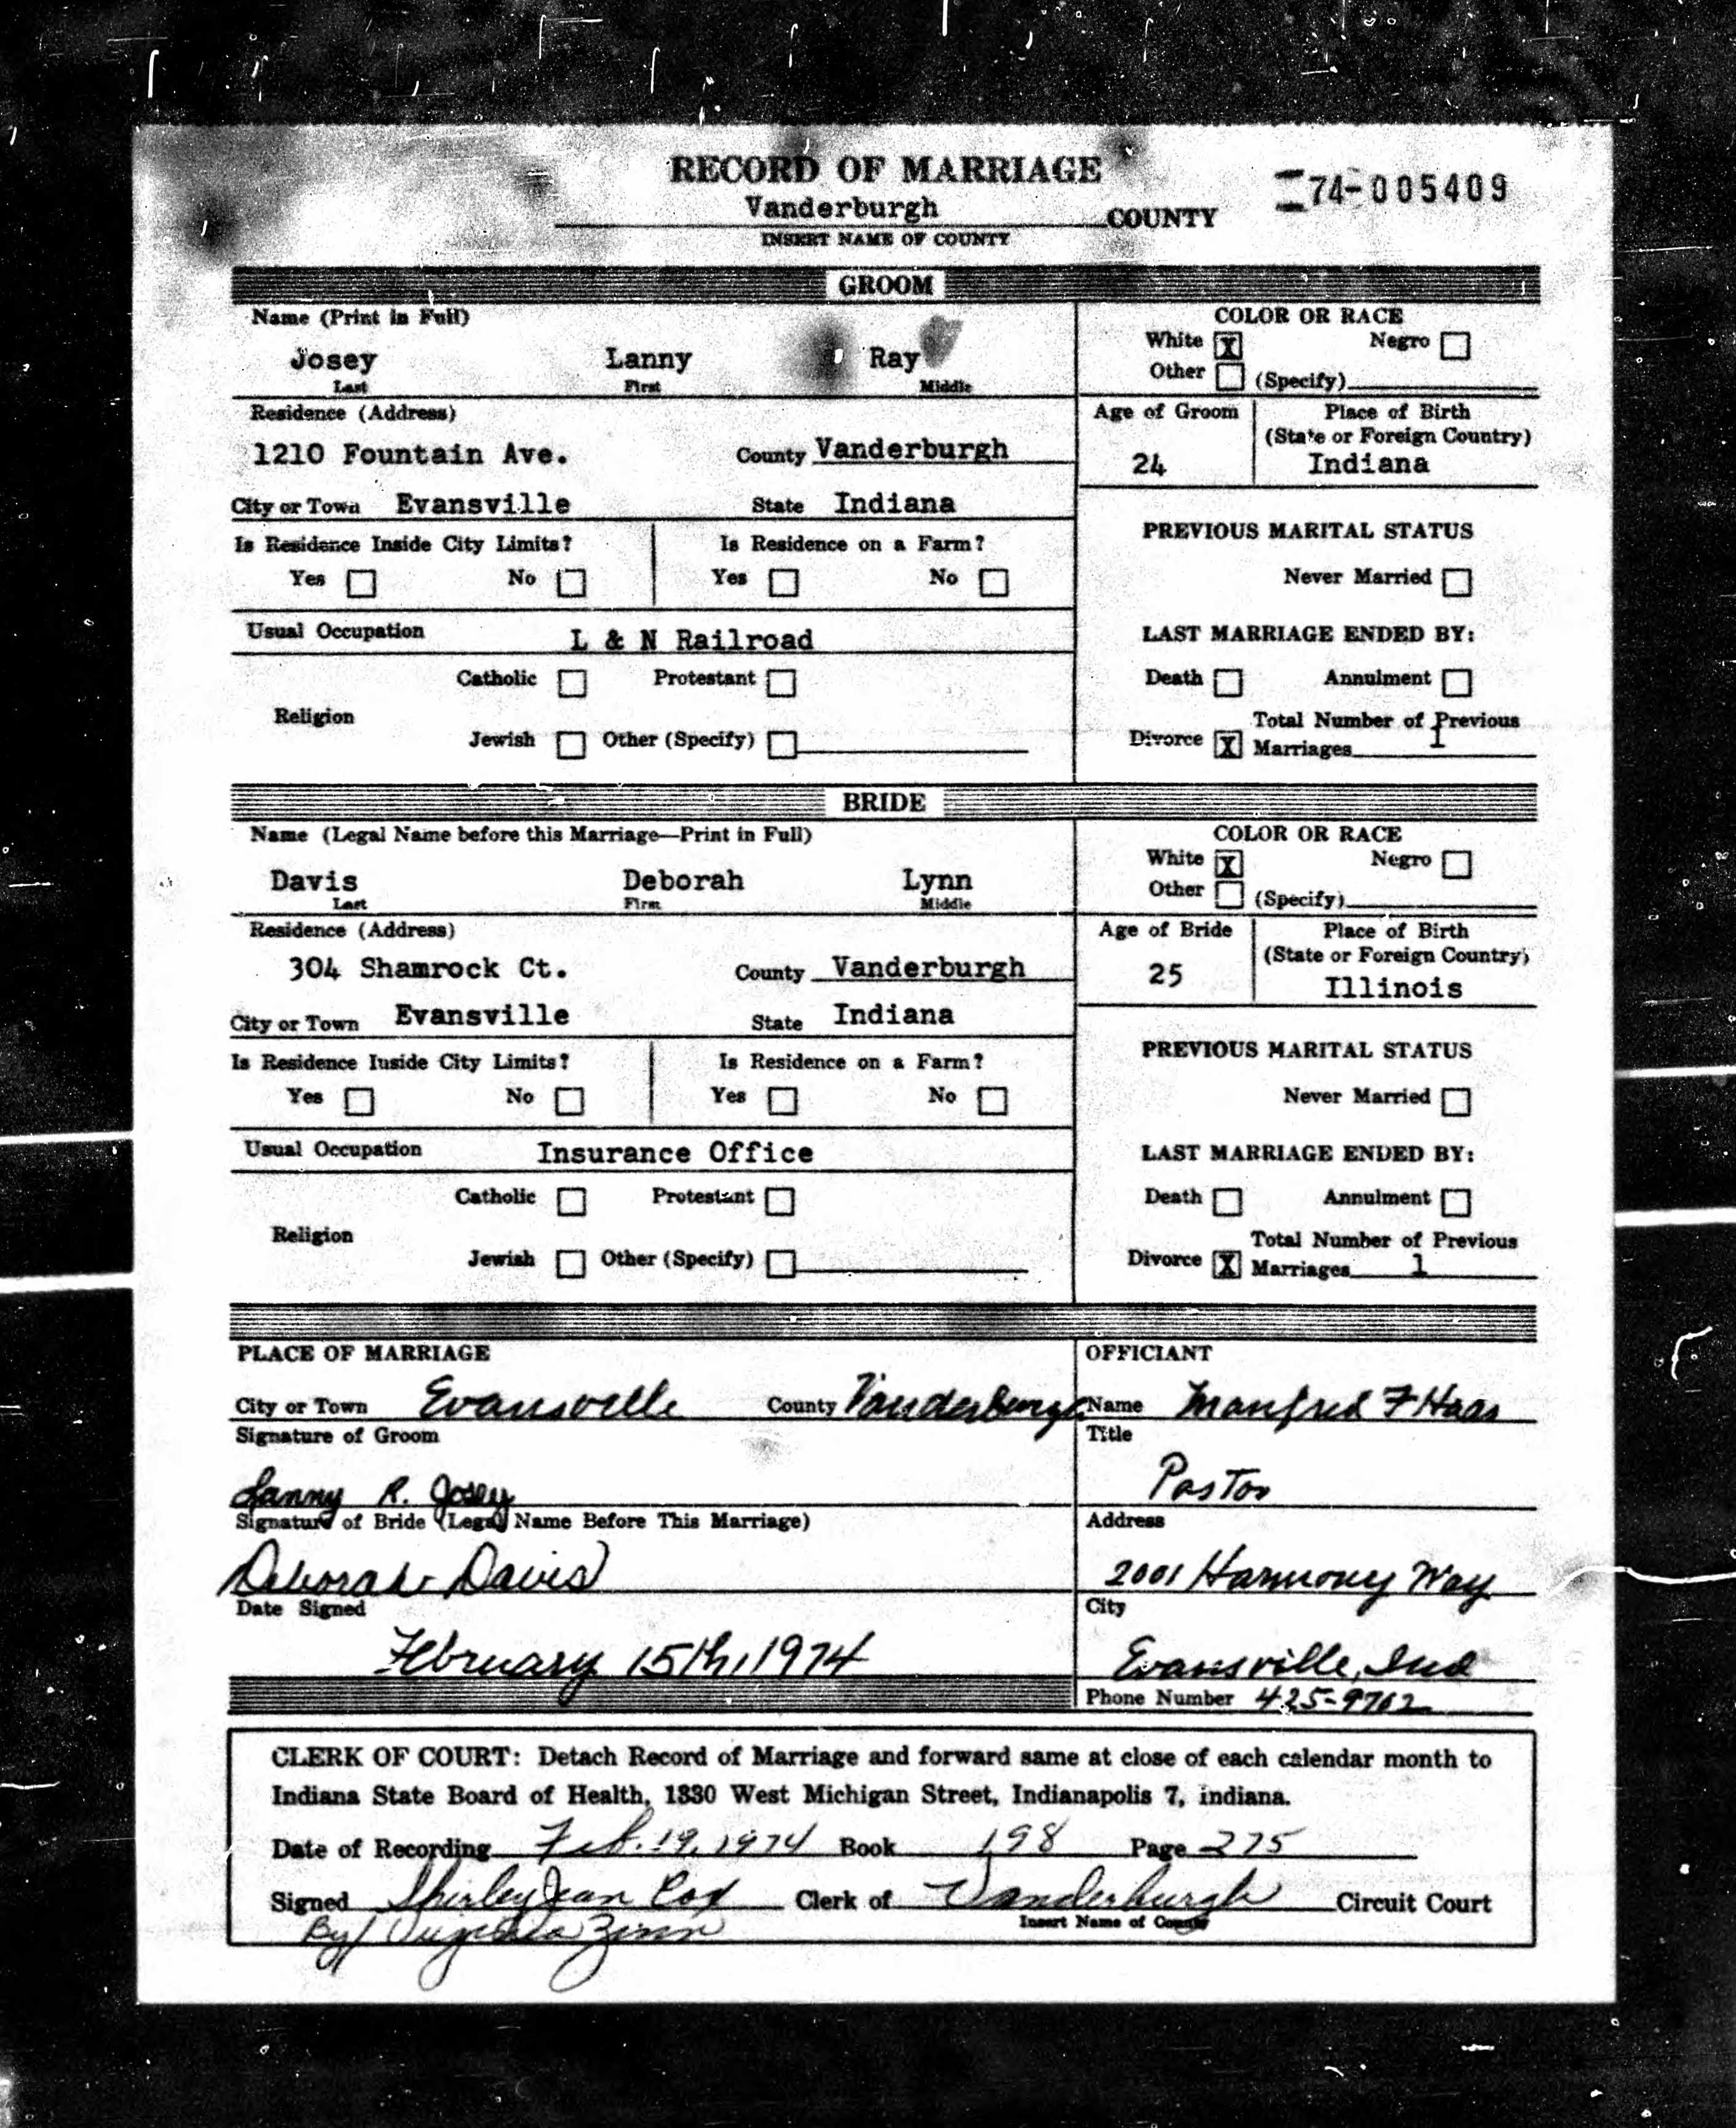 RECORD OF MARRIAGE
74-005409
Vanderburgh COUNTY
INSERT NAME OF COUNTY
GROOM
Name (Print in Full)
Josey Lanny Ray
Last First Middle
COLOR OR RACE
White X Negro
Other (Specify)
Residence (Address)
1210 Fountain Ave. County Vanderburgh
City or Town Evansville State Indiana
Age of Groom
24
Place of Birth
(State or Foreign Country)
Indiana
Is Residence Inside City Limits? Is Residence on a Farm?
Yes No Yes No
Usual Occupation L & N Railroad
Catholic Protestant
Religion
Jewish Other (Specify)
PREVIOUS MARITAL STATUS
Never Married
LAST MARRIAGE ENDED BY:
Death Annulment
Total Number of Previous
Divorce X Marriages 1
BRIDE
Name (Legal Name before this Marriage—Print in Full)
Davis Deborah Lynn
Last First Middle
COLOR OR RACE
White X Negro
Other (Specify)
Residence (Address)
304 Shamrock Ct. County Vanderburgh
City or Town Evansville State Indiana
Age of Bride
25
Place of Birth
(State or Foreign Country)
Illinois
Is Residence Inside City Limits? Is Residence on a Farm?
Yes No Yes No
Usual Occupation Insurance Office
Catholic Protestant
Religion
Jewish Other (Specify)
PREVIOUS MARITAL STATUS
Never Married
LAST MARRIAGE ENDED BY:
Death Annulment
Total Number of Previous
Divorce X Marriages 1
PLACE OF MARRIAGE
City or Town Evansville County Vanderburgh
Signature of Groom
Lanny R. Josey
Signature of Bride (Legal Name Before This Marriage)
Deborah Davis
Date Signed
February 15th, 1974
OFFICIANT
Name Manfred F Haas
Title
Pastor
Address
2001 Harmony Way
City
Evansville, Ind
Phone Number 425-9702
CLERK OF COURT: Detach Record of Marriage and forward same at close of each calendar month to
Indiana State Board of Health, 1330 West Michigan Street, Indianapolis 7, indiana.
Date of Recording Feb. 19, 1974 Book 198 Page 275
Signed Shirley Jean Cox Clerk of Vanderburgh Circuit Court
Insert Name of County
By/ Virginia Zinn